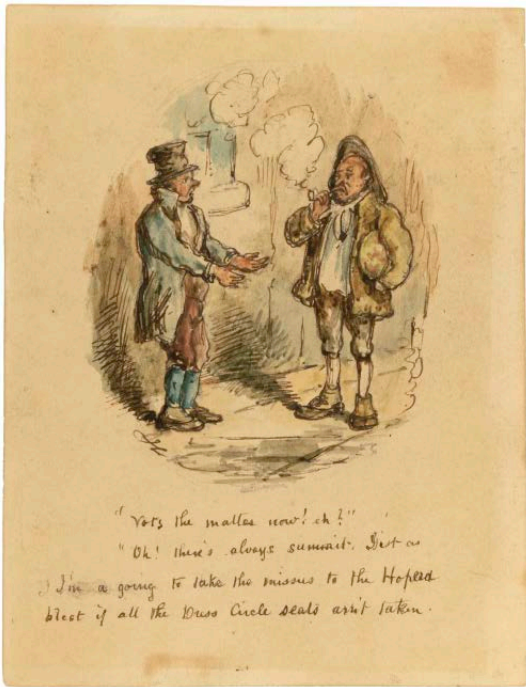 "Vot's the matter now! eh?"
"Oh! there's alvays summat. Dist as
I'm a going to take the missus to the Hopera
blest if all the Dress Circle seats arn't taken.